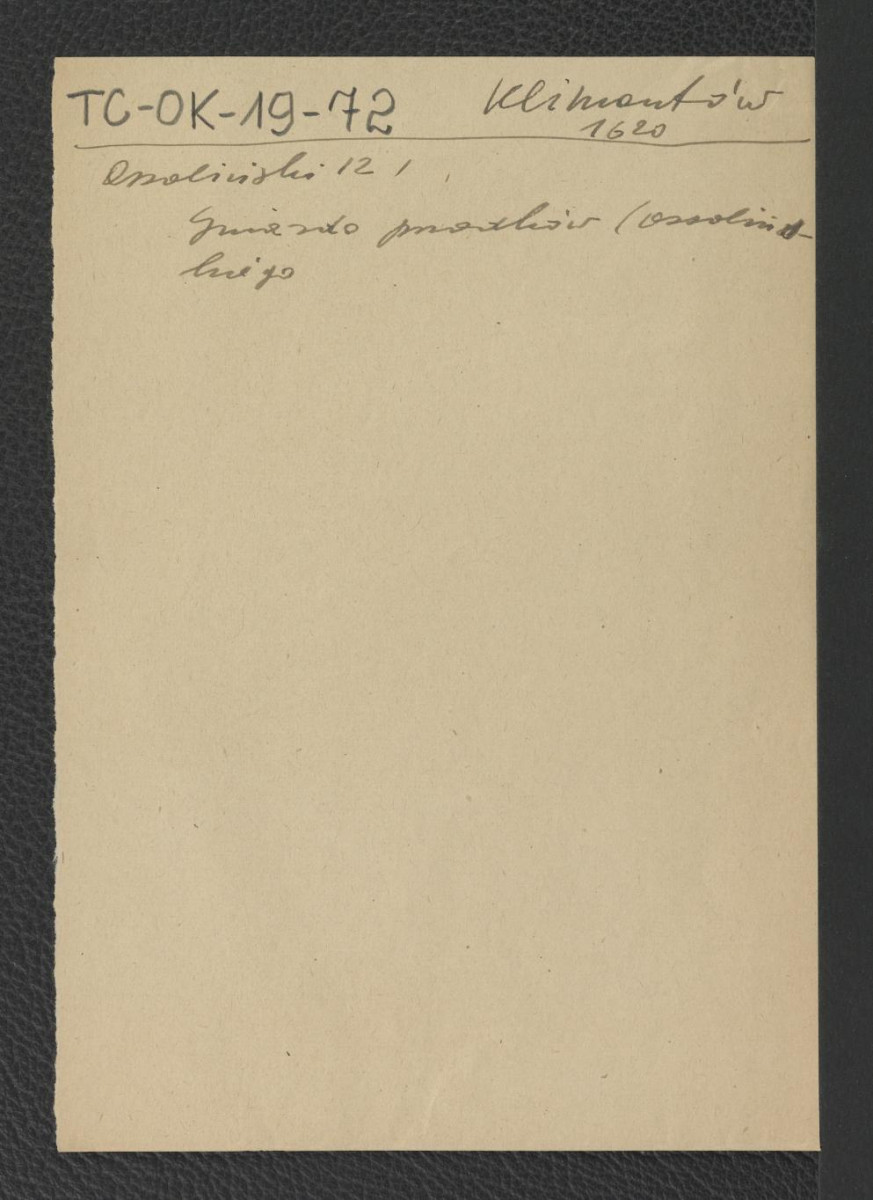 TC-OK-19-72 Klimontów
1620
Ossoliński 12 1
Gniazdo przodków (Ossolińs-
kiego